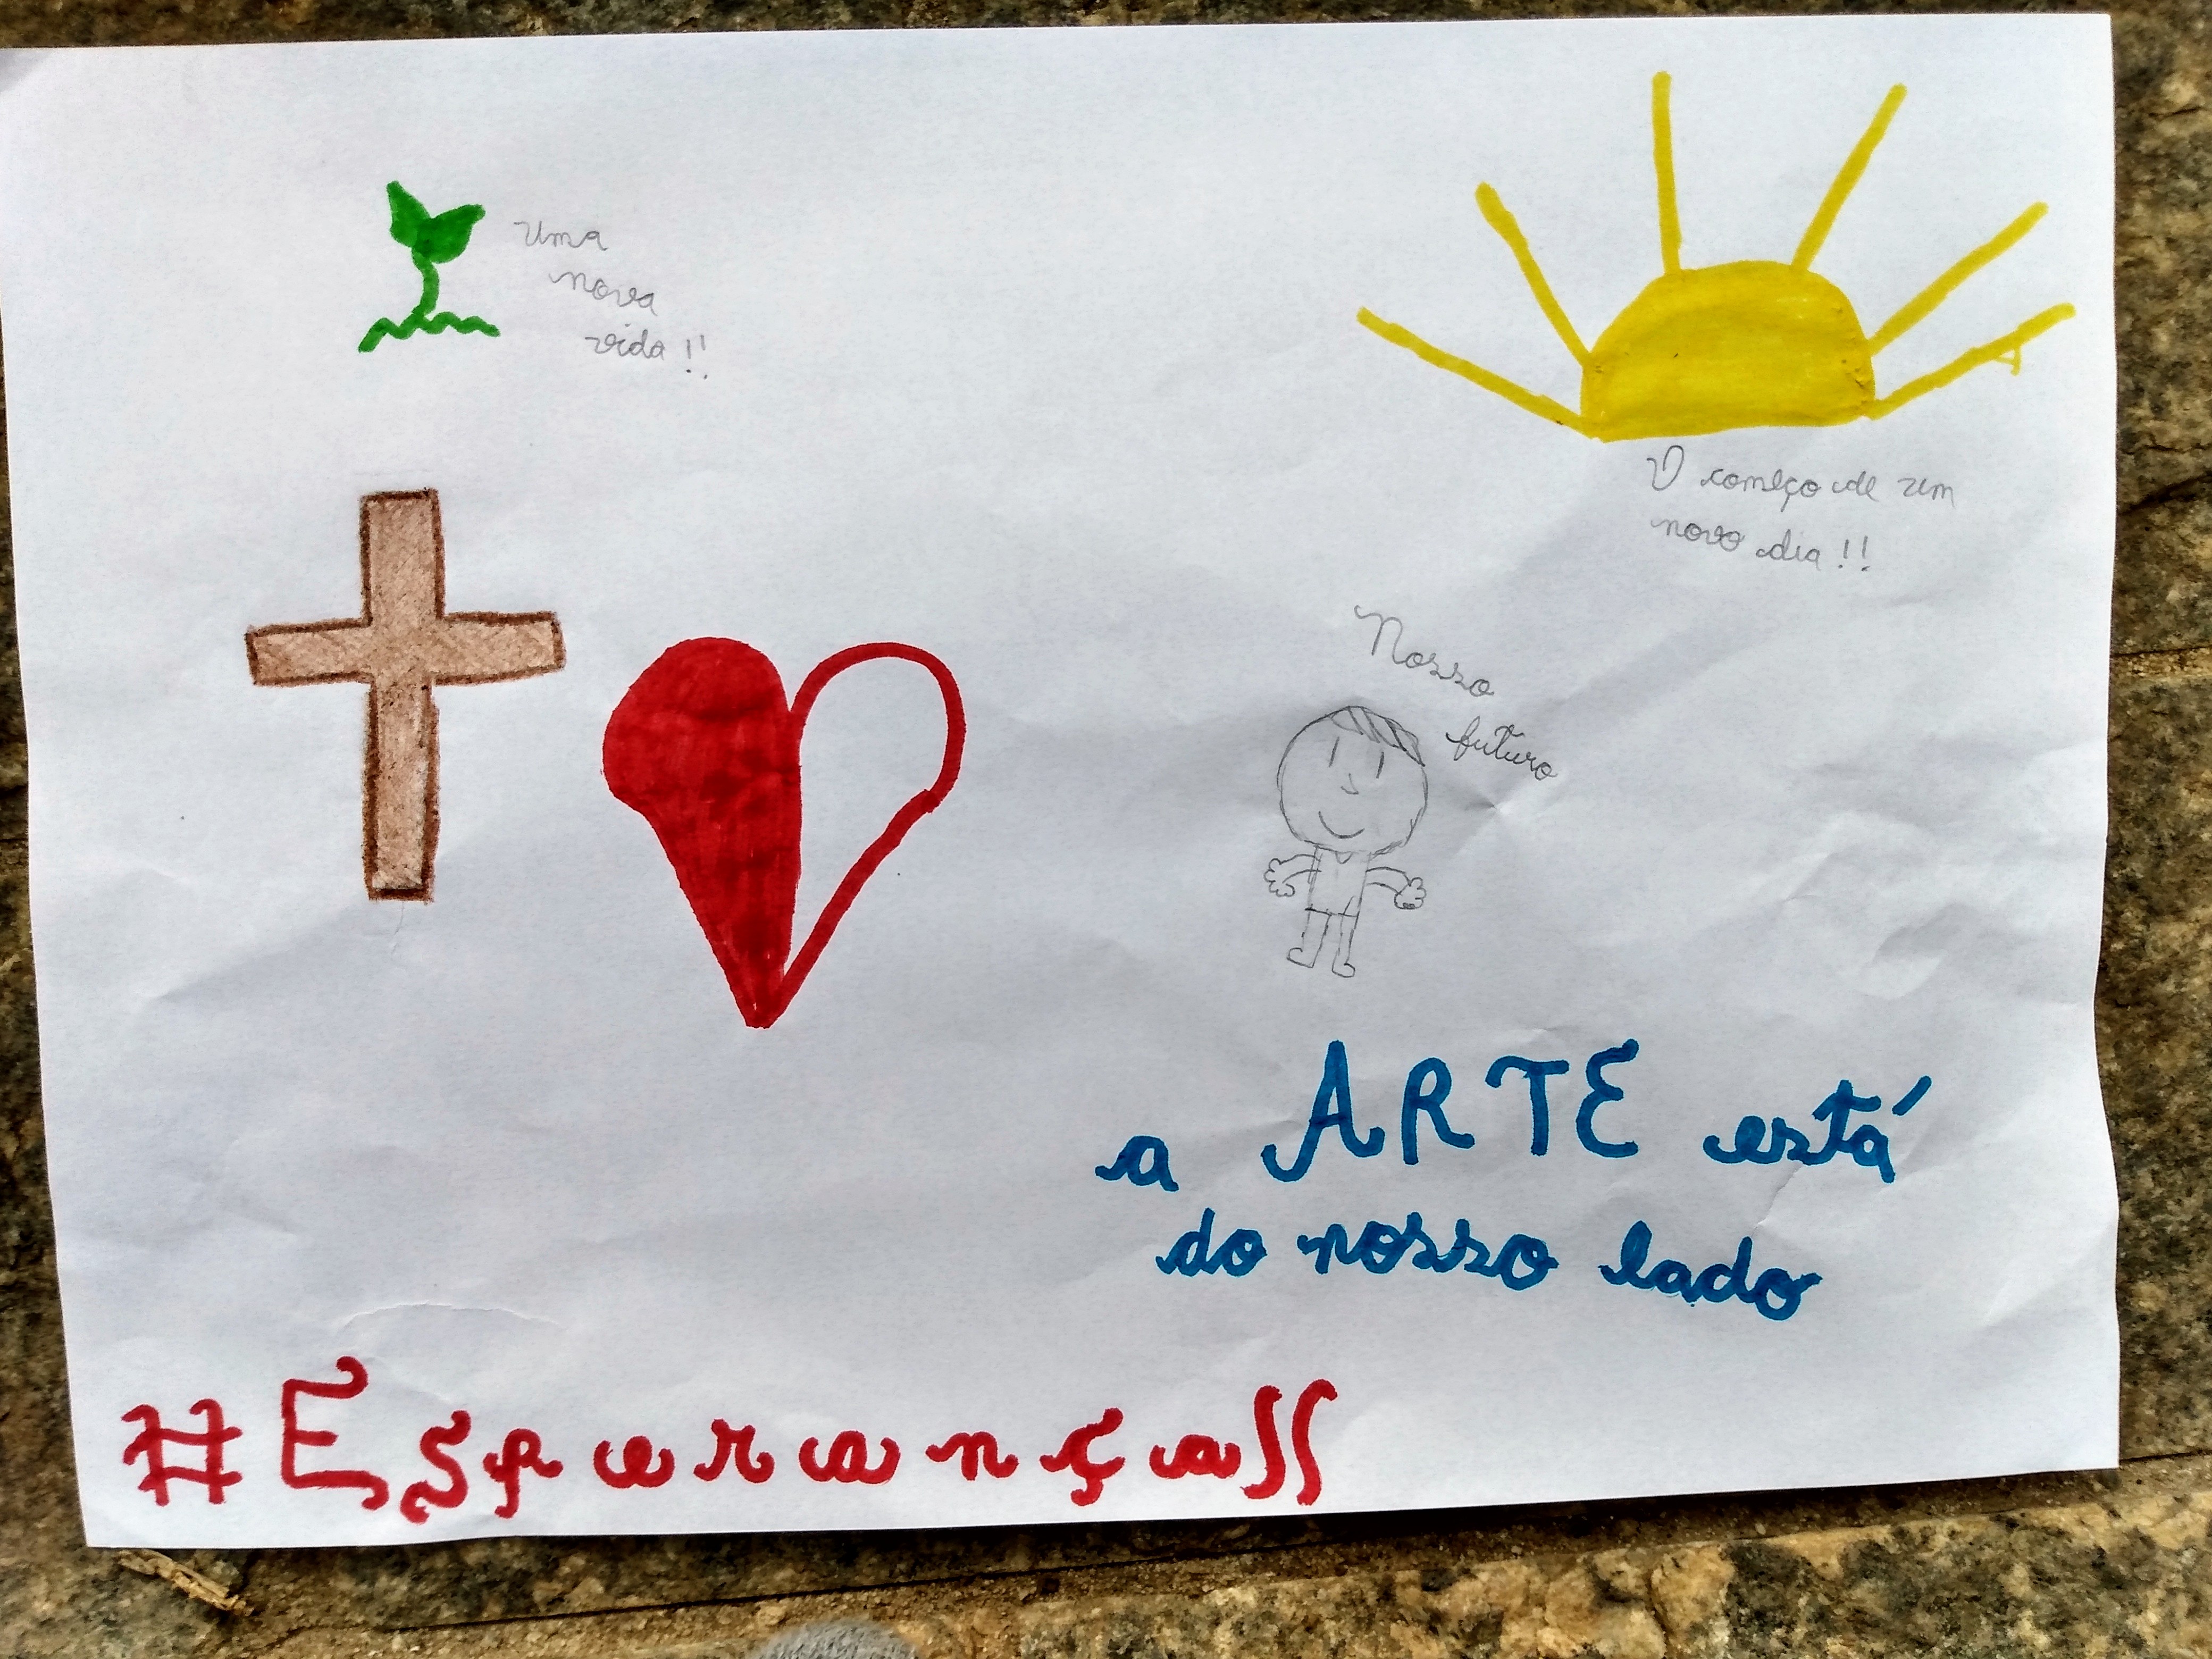 Uma
nova
vida!!
O começo de um
novo dia!!
Nosso
futuro
a ARTE está
do nosso lado
#Esperança!!